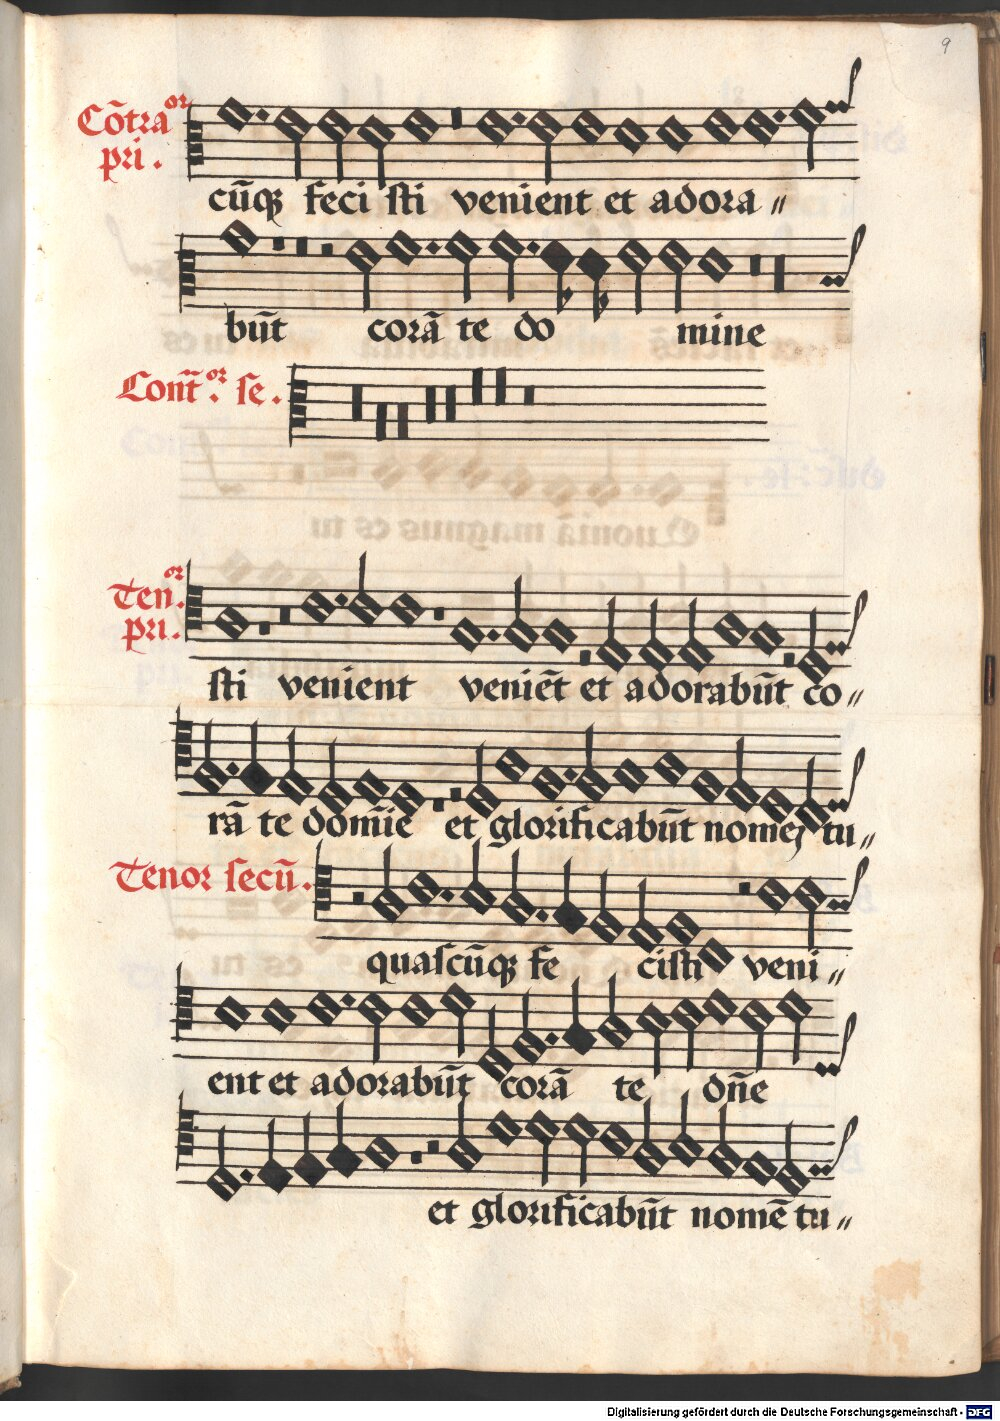 9
Cõtra^or
pri.
cũqꝫ feci sti venient et adora〃
bũt corã te do mine
Conť^or. se.
Ten^or.
pri.
sti venient veniẽt et adorabũt co〃
rã te domĩe et glorificabũt nomeȝ tu〃
Tenor secũ.
quascũqꝫ fe cisti veni〃
ent et adorabũt corã te dñe
et glorificabũt nomẽ tu〃
Digitalisierung gefördert durch die Deutsche Forschungsgemeinschaft - DFG